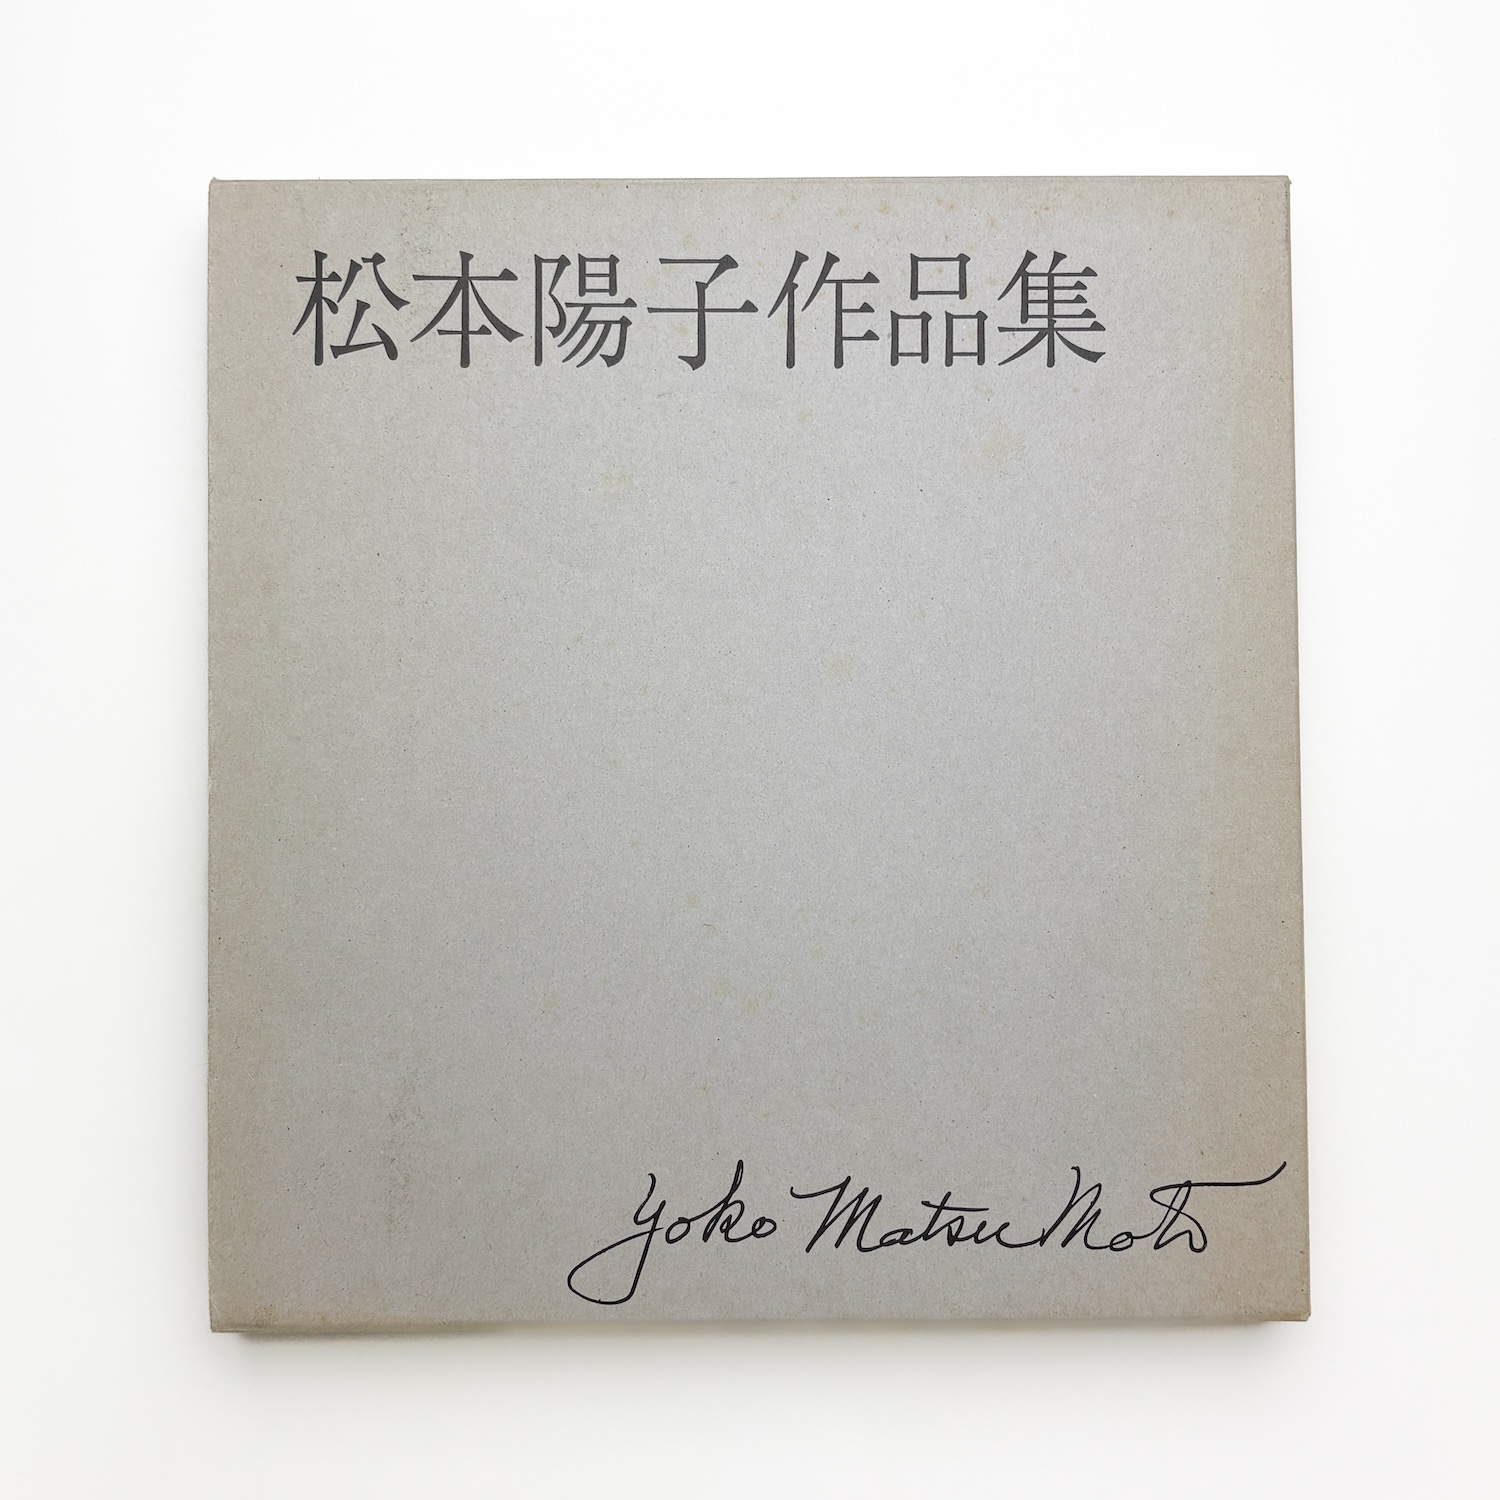 松本陽子作品集
Yoko Matsu Moto